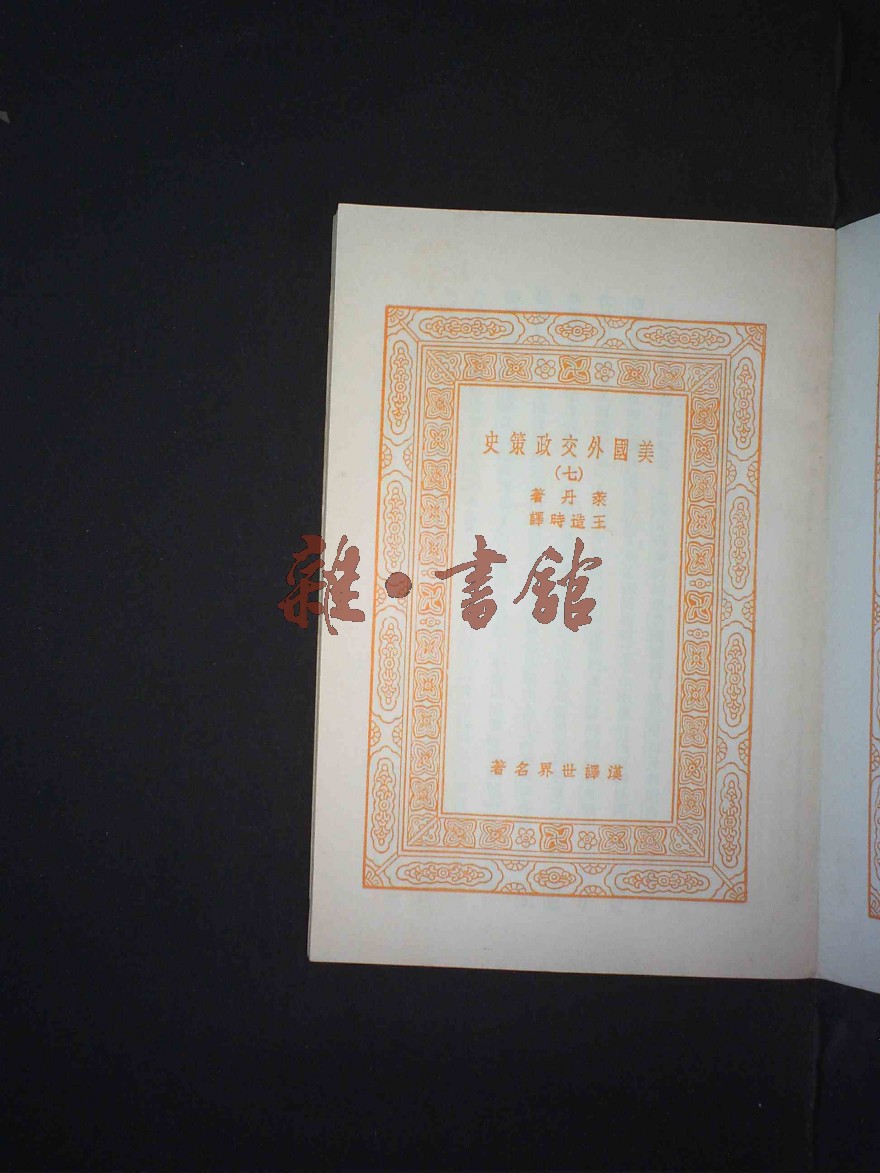 美國外交政策史
(七)
萊丹著
王造時譯
雜·書館
漢譯世界名著